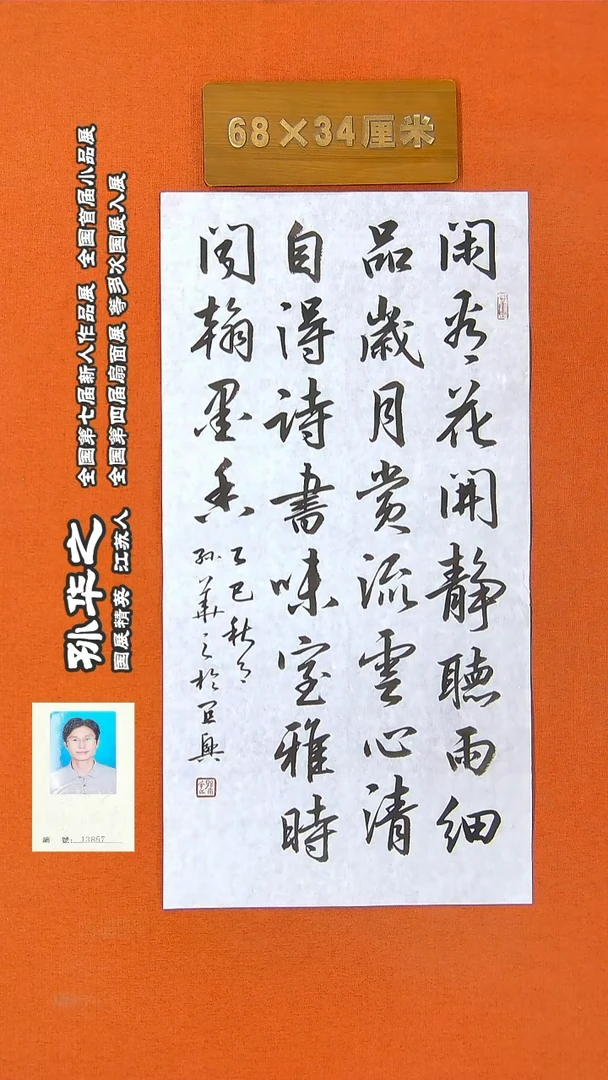 68×34厘米
閑看花開靜聽雨細
品歲月賞流雲心清
自得詩書味室雅時
聞翰墨香
乙巳秋月
孫華之於宜興
孙华之
国展精英 江苏人
全国第七届新人作品展 全国首届小品展
全国第四届扇面展 等多次国展入展
編 號: 13857